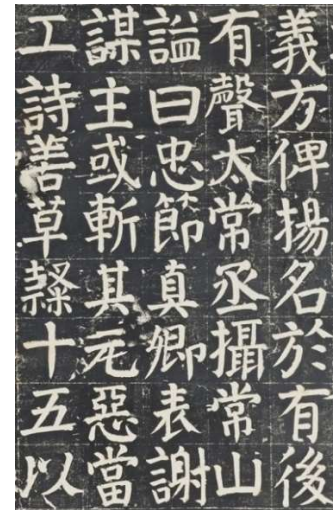 義方俾揚名於有後
有聲太常丞攝常山
謚曰忠節真卿表謝
謀主或斬其元惡當
工詩善草隸十五以